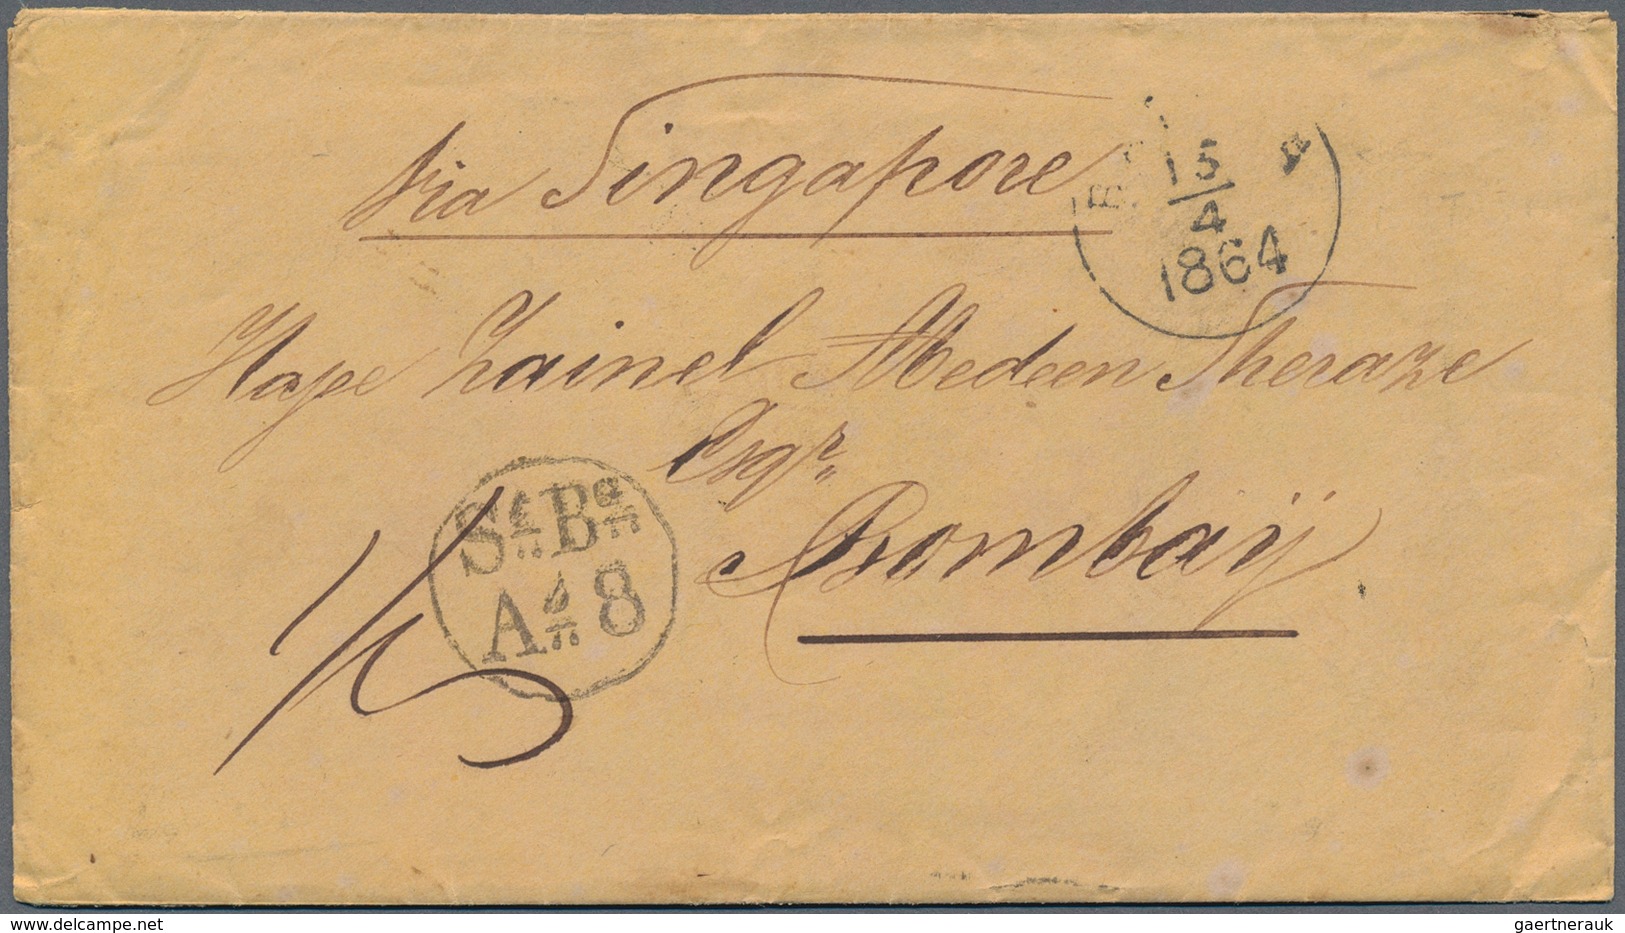 via Singapore
15
4
1864
Hape Zainel Abedeen Sheraze
Esqr
Bombaij
St. Bg
As 8
www.delcampe.net
gaertnerauk